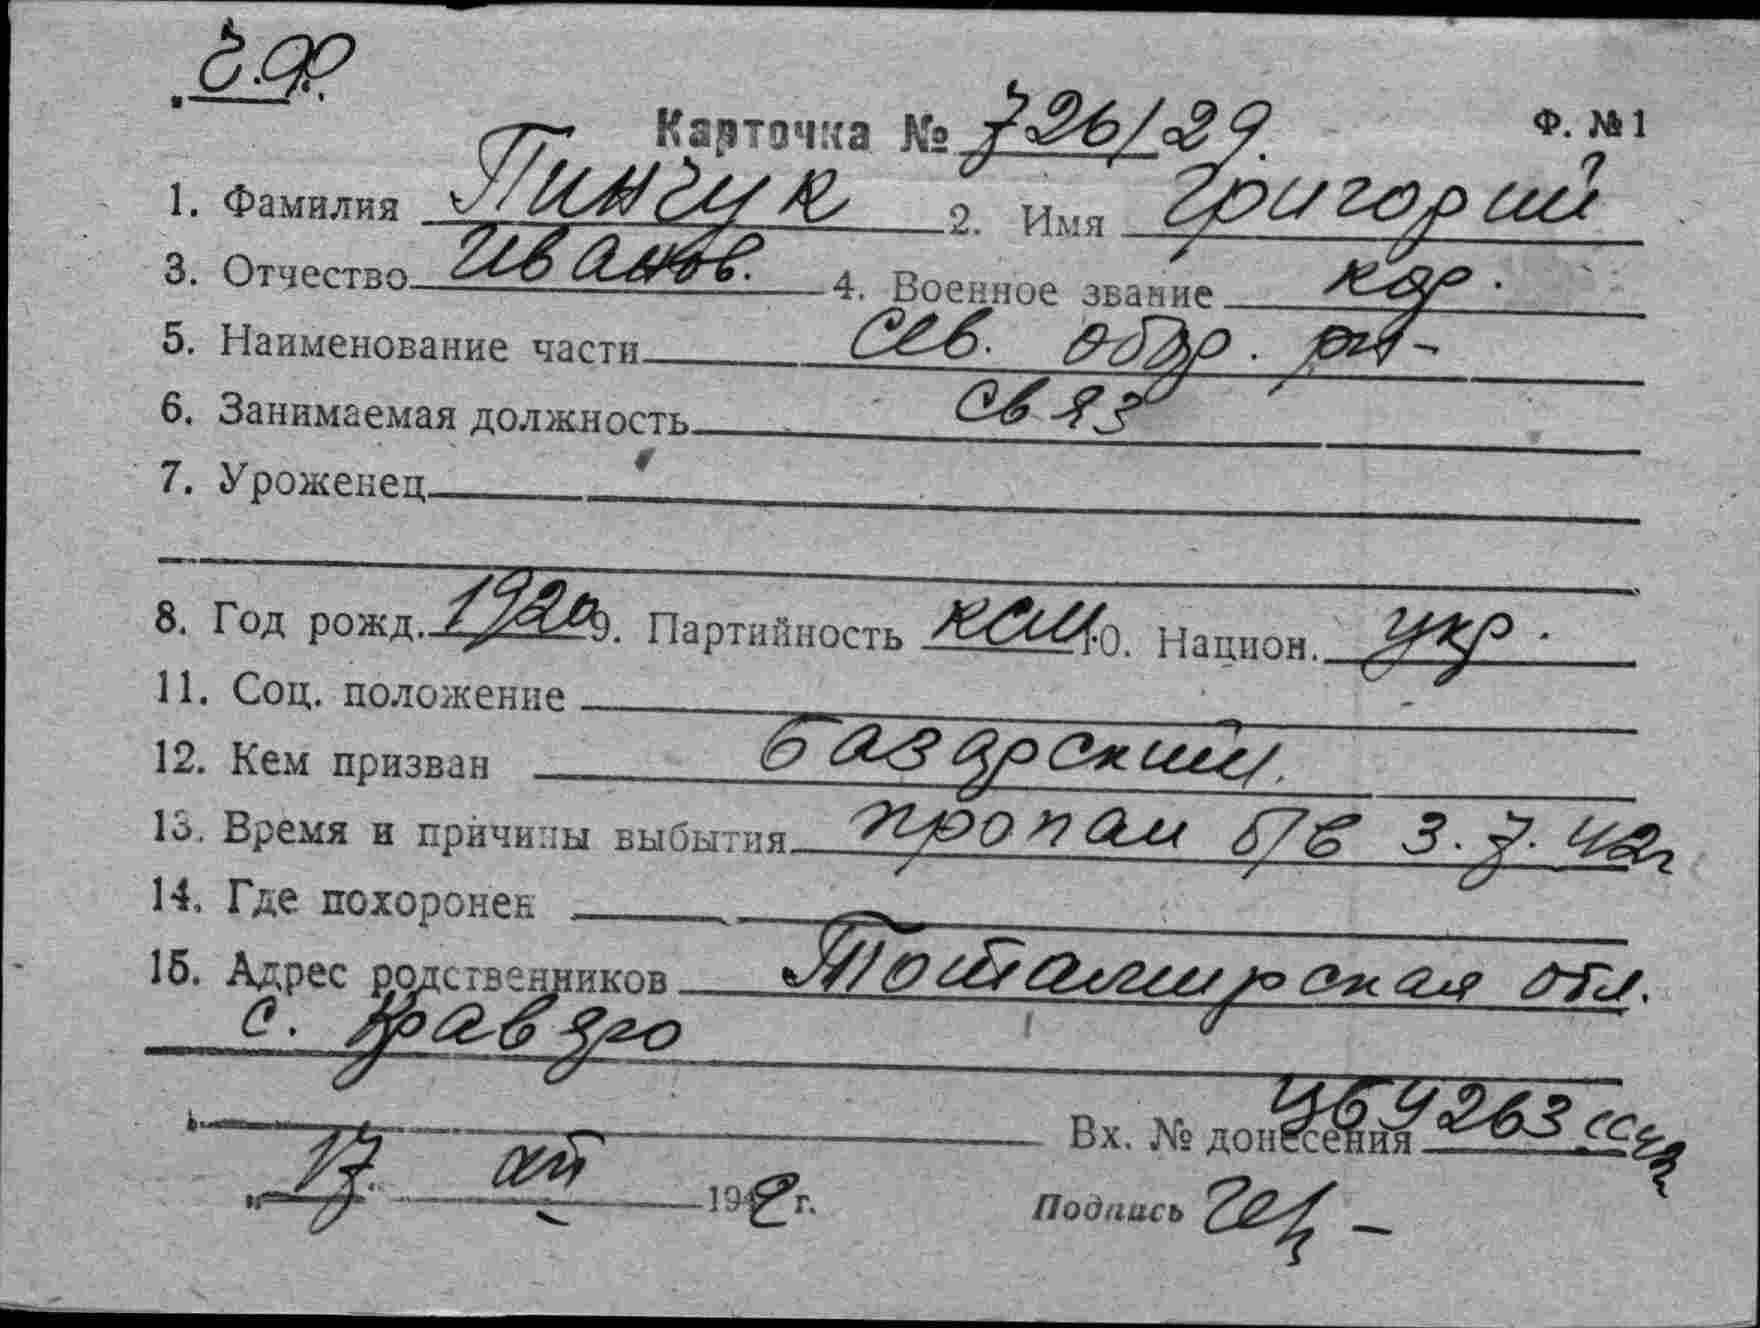 Ч.Ф.
Карточка № 726/29. Ф. №1
1. Фамилия Пинчук 2. Имя Григорий
3. Отчество Иванов. 4. Военное звание кр.
5. Наименование части Сев. обор. р-н
6. Занимаемая должность связ
7. Уроженец
8. Год рожд. 1920 9. Партийность ВЛКСМ 10. Национ. укр.
11. Соц. положение
12. Кем призван Базарский.
13. Время и причины выбытия пропал б/в 3.7.42г
14. Где похоронен
15. Адрес родственников Житомирская обл.
с.
Вх. № донесения 9263
„17. 1942 г. Подпись